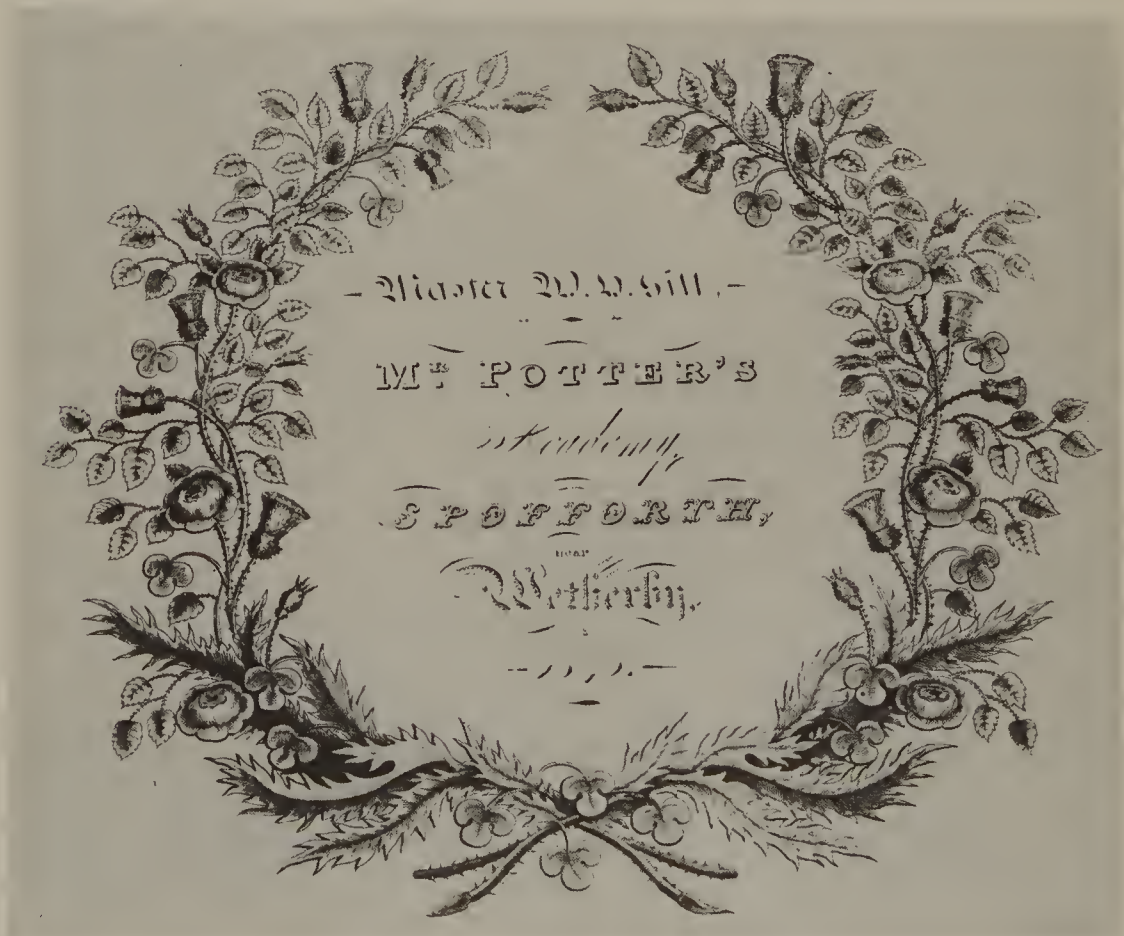 Master W. D. Gill,
Mr. POTTER'S
Academy,
SPOFFORTH,
near
Wetherby,